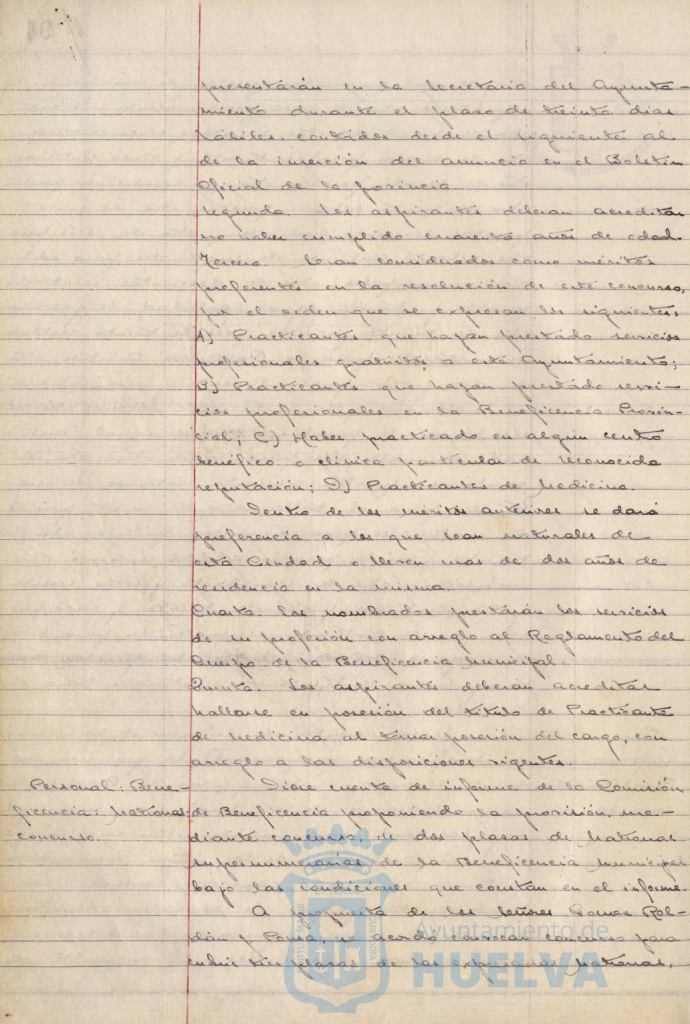 presentarán en la Secretaría del Ayunta-
miento durante el plazo de treinta días
hábiles, contados desde el siguiente al
de la inserción del anuncio en el Boletín
Oficial de la provincia.
Segunda. Los aspirantes deberán acreditar
no haber cumplido cuarenta años de edad.
Tercero. Serán considerados como méritos
preferentes en la resolución de este concurso,
por el orden que se expresan los siguientes
A) Practicantes que hayan prestado servicios
profesionales gratuitos a este Ayuntamiento;
B) Practicantes que hayan prestado servi-
cios profesionales en la Beneficencia Provin-
cial; C) Haber practicado en algun centro
benéfico o clínica particular de reconocida
reputación; D) Practicantes de Medicina.
Dentro de los méritos anteriores se dará
preferencia a los que sean naturales de
esta Ciudad o lleven mas de dos años de
residencia en la misma.
Cuarta. Los nombrados prestarán los servicios
de su profesión con arreglo al Reglamento del
Cuerpo de la Beneficencia Municipal.
Quinta. Los aspirantes deberán acreditar
hallarse en posesión del título de Practicante
de Medicina al tomar posesión del cargo, con
arreglo a las disposiciones vigentes.
Personal: Bene-
ficencia: Matronas:
concurso.
Diose cuenta de informe de la Comisión
de Beneficencia proponiendo la provisión, me-
diante concurso, de dos plazas de Matronas
supernumerarias de la Beneficencia Municipal
bajo las condiciones que constan en el informe.
A propuesta de los Señores Gomez Rol-
dán y se acordó convocar concurso para
cubrir tres plazas de las expresadas Matronas,
Ayuntamiento de
HUELVA